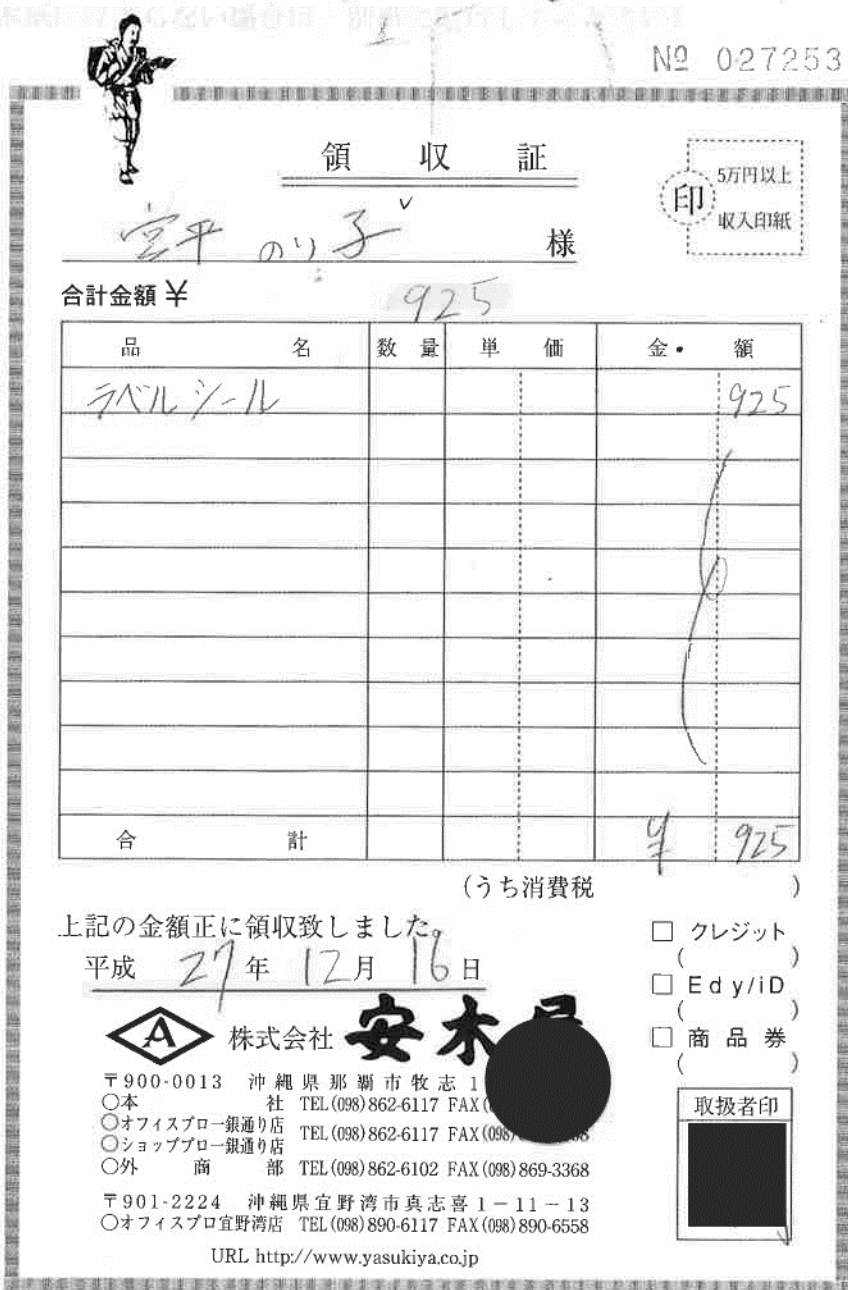 № 027253
領 収 証
5万円以上
印
収入印紙
宮平 のり子 様
合計金額 ¥ 925
品 名 数 量 単 価 金 額
ラベルシール 925
合 計 ¥ 925
(うち消費税 )
上記の金額正に領収致しました。
平成 27 年 12 月 16 日
□ クレジット
( )
□ Edy/iD
( )
□ 商品券
( )
A 株式会社 安木屋
〒900-0013 沖縄県那覇市牧志1
○本 社 TEL(098)862-6117 FAX(
○オフィスプロ一銀通り店
○ショッププロ一銀通り店
TEL(098)862-6117 FAX(098)
○外 商 部 TEL(098)862-6102 FAX(098)869-3368
〒901-2224 沖縄県宜野湾市真志喜1-11-13
○オフィスプロ宜野湾店 TEL(098)890-6117 FAX(098)890-6558
URL http://www.yasukiya.co.jp
取扱者印